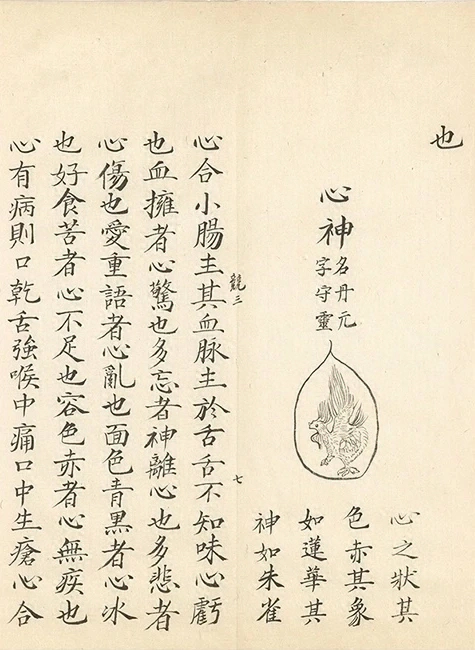 也
心神
名丹元
字守靈
心之狀其
色赤其象
如蓮華其
神如朱雀
競三
七
心合小腸主其血脉主於舌舌不知味心虧
也血擁者心驚也多忘者神離心也多悲者
心傷也愛重語者心亂也面色青黑者心冰
也好食苦者心不足也容色赤者心無疾也
心有病則口乾舌強喉中痛口中生瘡心合